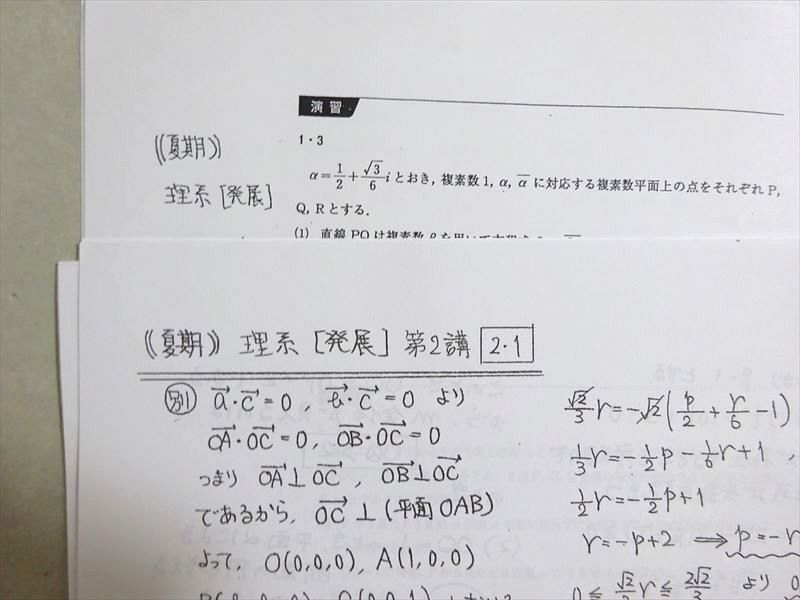 演習
1・3
《夏期》
理系[発展]
α=1/2+√3/6 iとおき,複素数1,α,α̅に対応する複素数平面上の点をそれぞれP,
Q,Rとする.
(1) 直線PQは複素数
《夏期》理系[発展]第2講 2・1
別 a⃗・c⃗=0 b⃗・c⃗=0 より
OA⃗・OC⃗=0, OB⃗・OC⃗=0
つまり OA⃗⊥OC⃗, OB⃗⊥OC⃗
であるから, OC⃗⊥(平面OAB)
よって, O(0,0,0), A(1,0,0)
√2/3 r=-√2(p/2+r/6-1)
1/3 r=-1/2 p-1/6 r+1,
1/2 r=-1/2 p+1
r=-p+2 ⟹ p=-r
0≦√2/3 r≦2√2/3 より 0